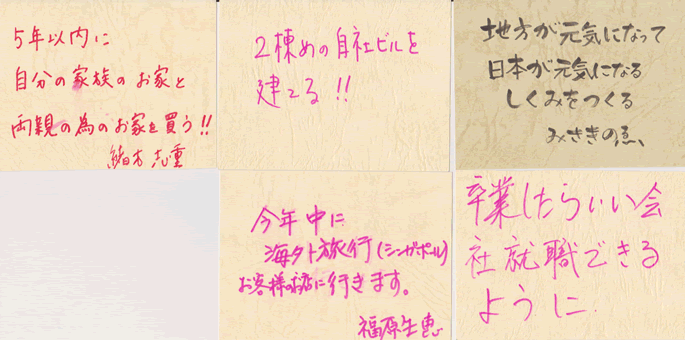 5年以内に
自分の家族のお家と
両親の為のお家を買う!!
緒方志重
2棟めの自社ビルを
建てる!!
地方が元気になって
日本が元気になる
しくみをつくる
みさきのゑ、
今年中に
海外旅行(シンガポール)
お客様のお店に行きます。
福原生恵
卒業したらいい会
社就職できる
ように